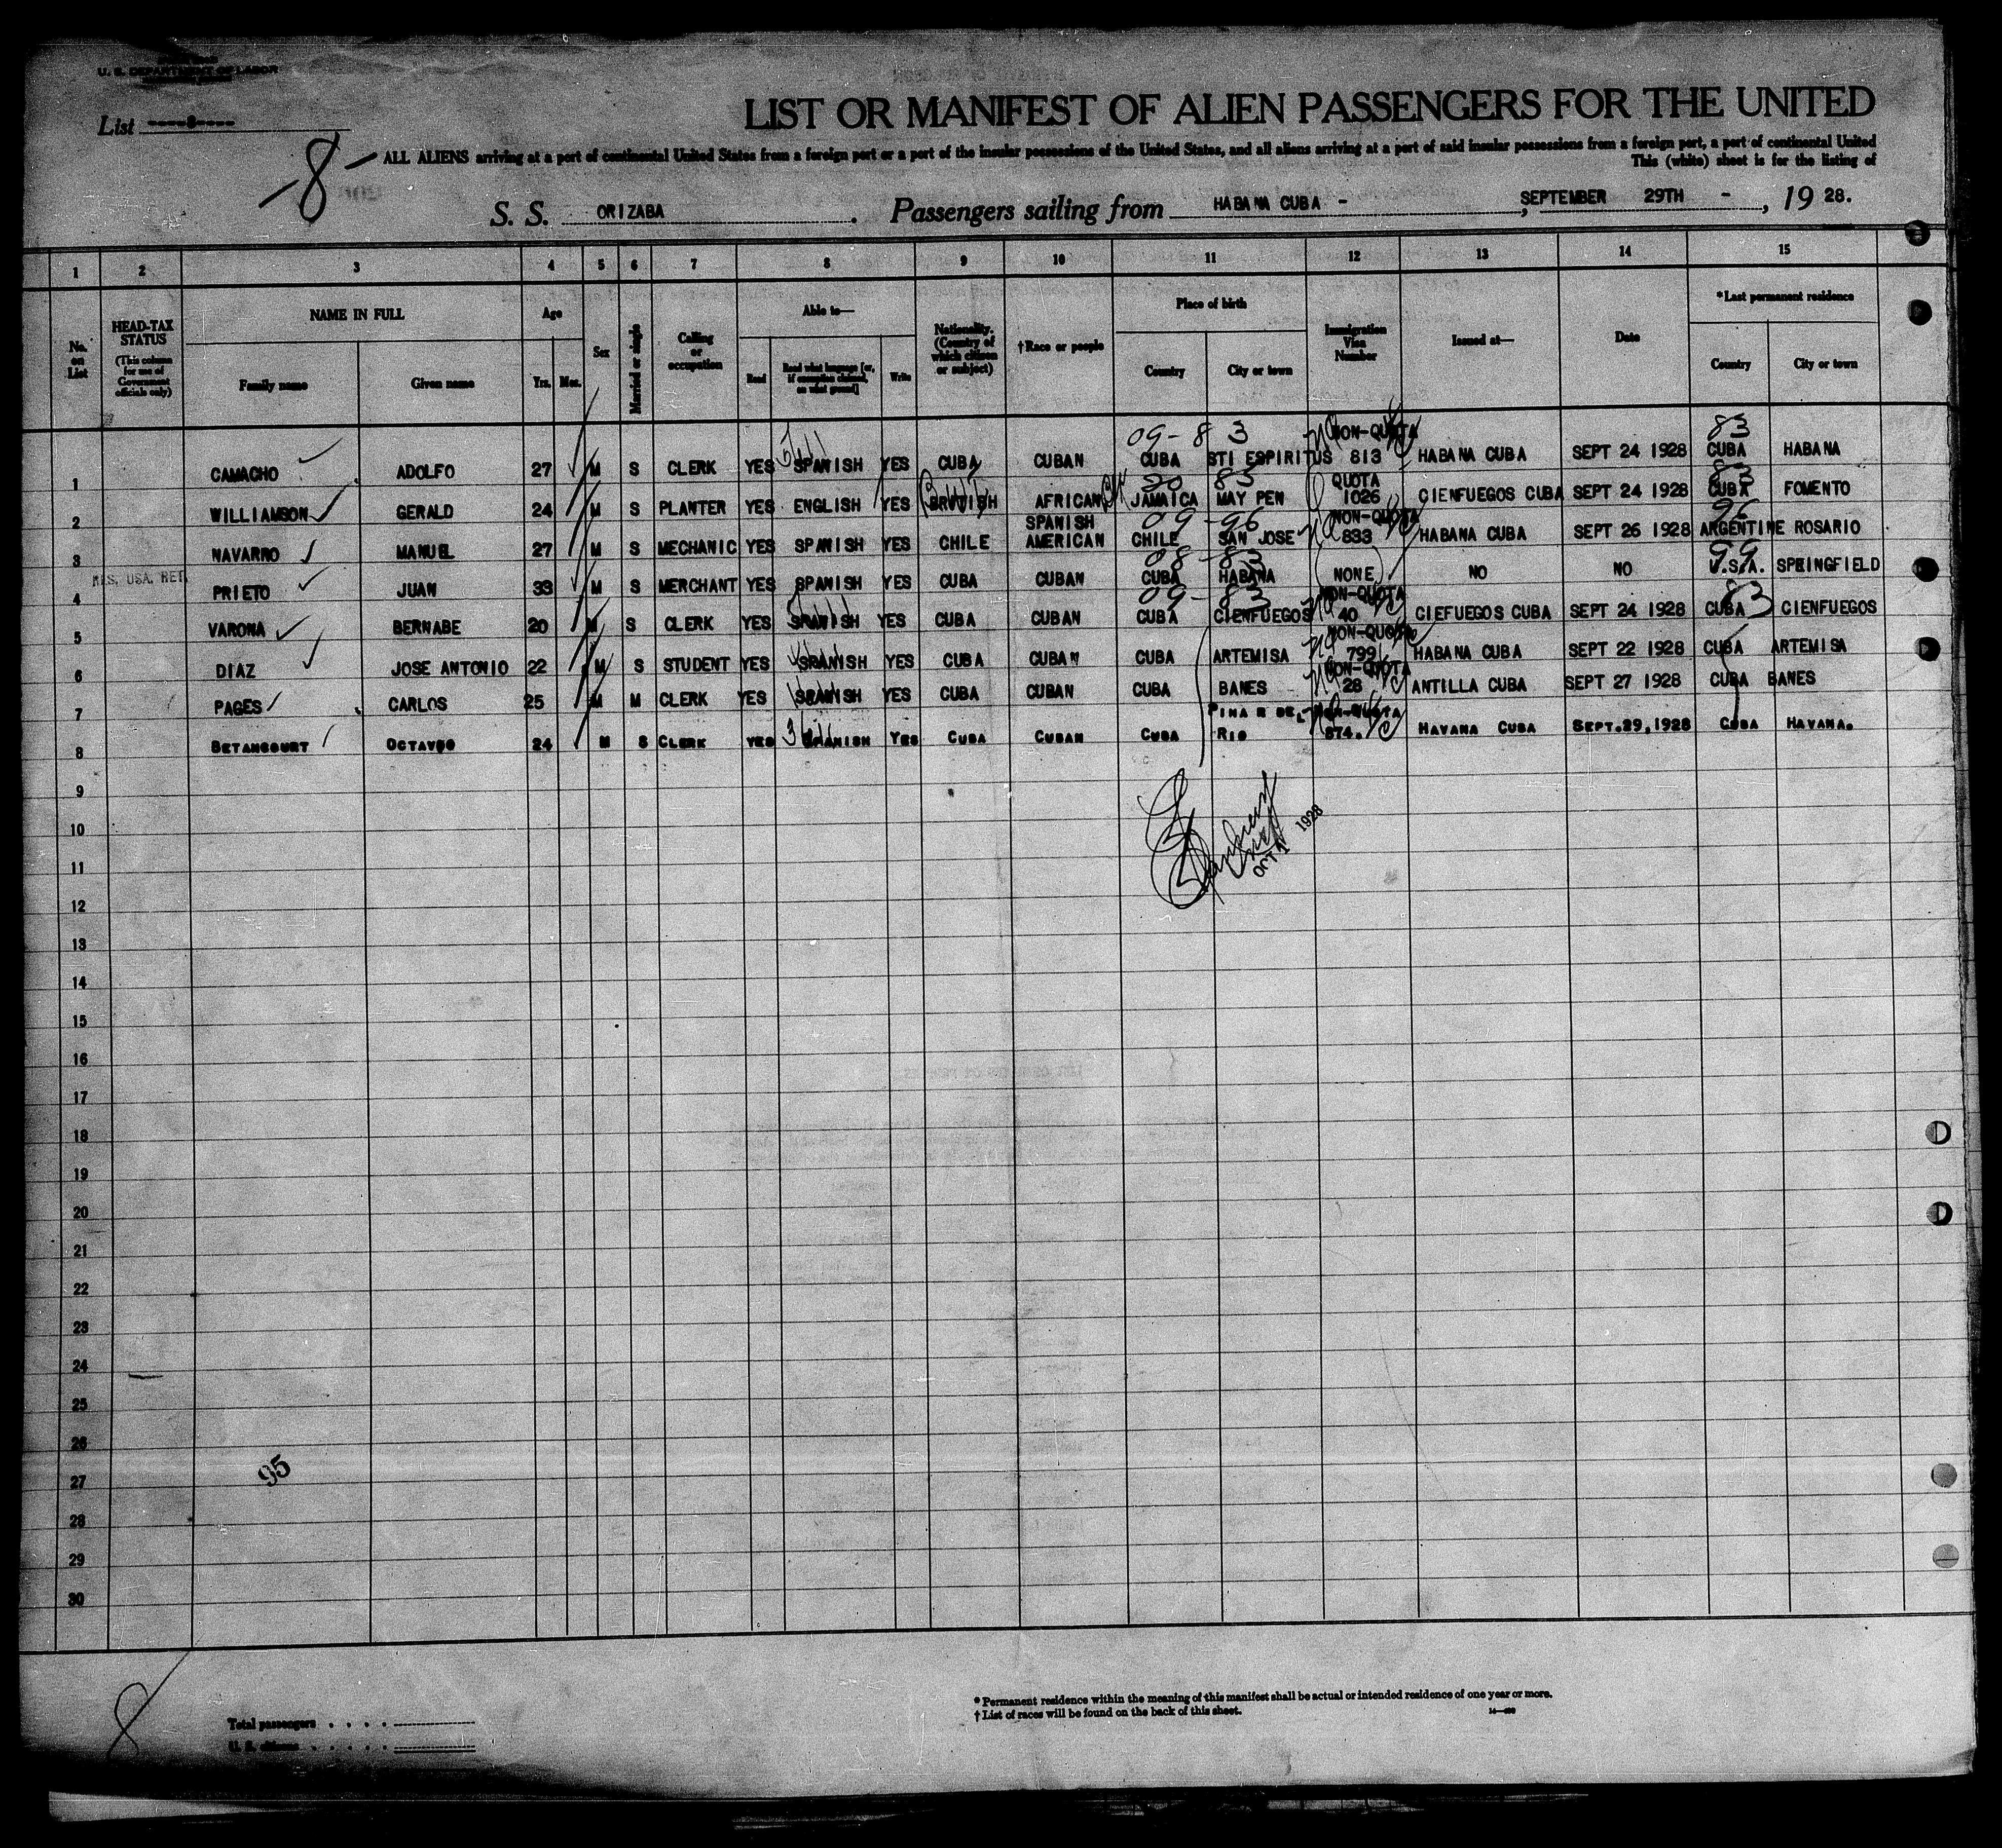 U. S. DEPARTMENT OF LABOR
List ----8----
-8-
LIST OR MANIFEST OF ALIEN PASSENGERS FOR THE UNITED
ALL ALIENS arriving at a port of continental United States from a foreign port or a port of the insular possessions of the United States, and all aliens arriving at a port of said insular possessions from a foreign port, a port of continental United
This (white) sheet is for the listing of
S. S. ORIZABA. Passengers sailing from HABANA CUBA - , SEPTEMBER 29TH - , 19 28.
1 2 3 4 5 6 7 8 9 10 11 12 13 14 15
No. on List
HEAD-TAX STATUS (This column for use of Government officials only)
NAME IN FULL Family name Given name
Age Yrs. Mos.
Sex
Married or single
Calling or occupation
Able to— Read Read what language [or, if exemption claimed, on what ground] Write
Nationality. (Country of which citizen or subject)
†Race or people
Place of birth Country City or town
Immigration Visa Number
Issued at—
Date
*Last permanent residence Country City or town
09-8 3 NON-QUOTA 83
1 CAMACHO ADOLFO 27 M S CLERK YES SPANISH YES CUBA CUBAN CUBA STI ESPIRITUS 813 HABANA CUBA SEPT 24 1928 CUBA HABANA
20 83 QUOTA 83
2 WILLIAMSON GERALD 24 M S PLANTER YES ENGLISH YES BRITISH AFRICAN JAMAICA MAY PEN 1026 CIENFUEGOS CUBA SEPT 24 1928 CUBA FOMENTO
09-96 NON-QUOTA 96
3 NAVARRO MANUEL 27 M S MECHANIC YES SPANISH YES CHILE SPANISH AMERICAN CHILE SAN JOSE 833 HABANA CUBA SEPT 26 1928 ARGENTINE ROSARIO
08-83 99
4 RES. USA. RET. PRIETO JUAN 33 M S MERCHANT YES SPANISH YES CUBA CUBAN CUBA HABANA NONE NO NO U.S.A. SPRINGFIELD
09-83 NON-QUOTA 83
5 VARONA BERNABE 20 M S CLERK YES SPANISH YES CUBA CUBAN CUBA CIENFUEGOS 40 CIEFUEGOS CUBA SEPT 24 1928 CUBA CIENFUEGOS
NON-QUOTA
6 DIAZ JOSE ANTONIO 22 M S STUDENT YES SPANISH YES CUBA CUBAN CUBA ARTEMISA 799 HABANA CUBA SEPT 22 1928 CUBA ARTEMISA
NON-QUOTA
7 PAGES CARLOS 25 M M CLERK YES SPANISH YES CUBA CUBAN CUBA BANES 28 ANTILLA CUBA SEPT 27 1928 CUBA BANES
PINAR DEL NON-QUOTA
8 BETANCOURT OCTAVIO 24 M S CLERK YES SPANISH YES CUBA CUBAN CUBA RIO 874. HAVANA CUBA SEPT.29,1928 CUBA HAVANA.
9
OCT 1928
10
11
12
13
14
15
16
17
18
19
20
21
22
23
24
25
26
95
27
28
29
30
8
* Permanent residence within the meaning of this manifest shall be actual or intended residence of one year or more.
† List of races will be found on the back of this sheet.
Total passengers
U. S. citizens